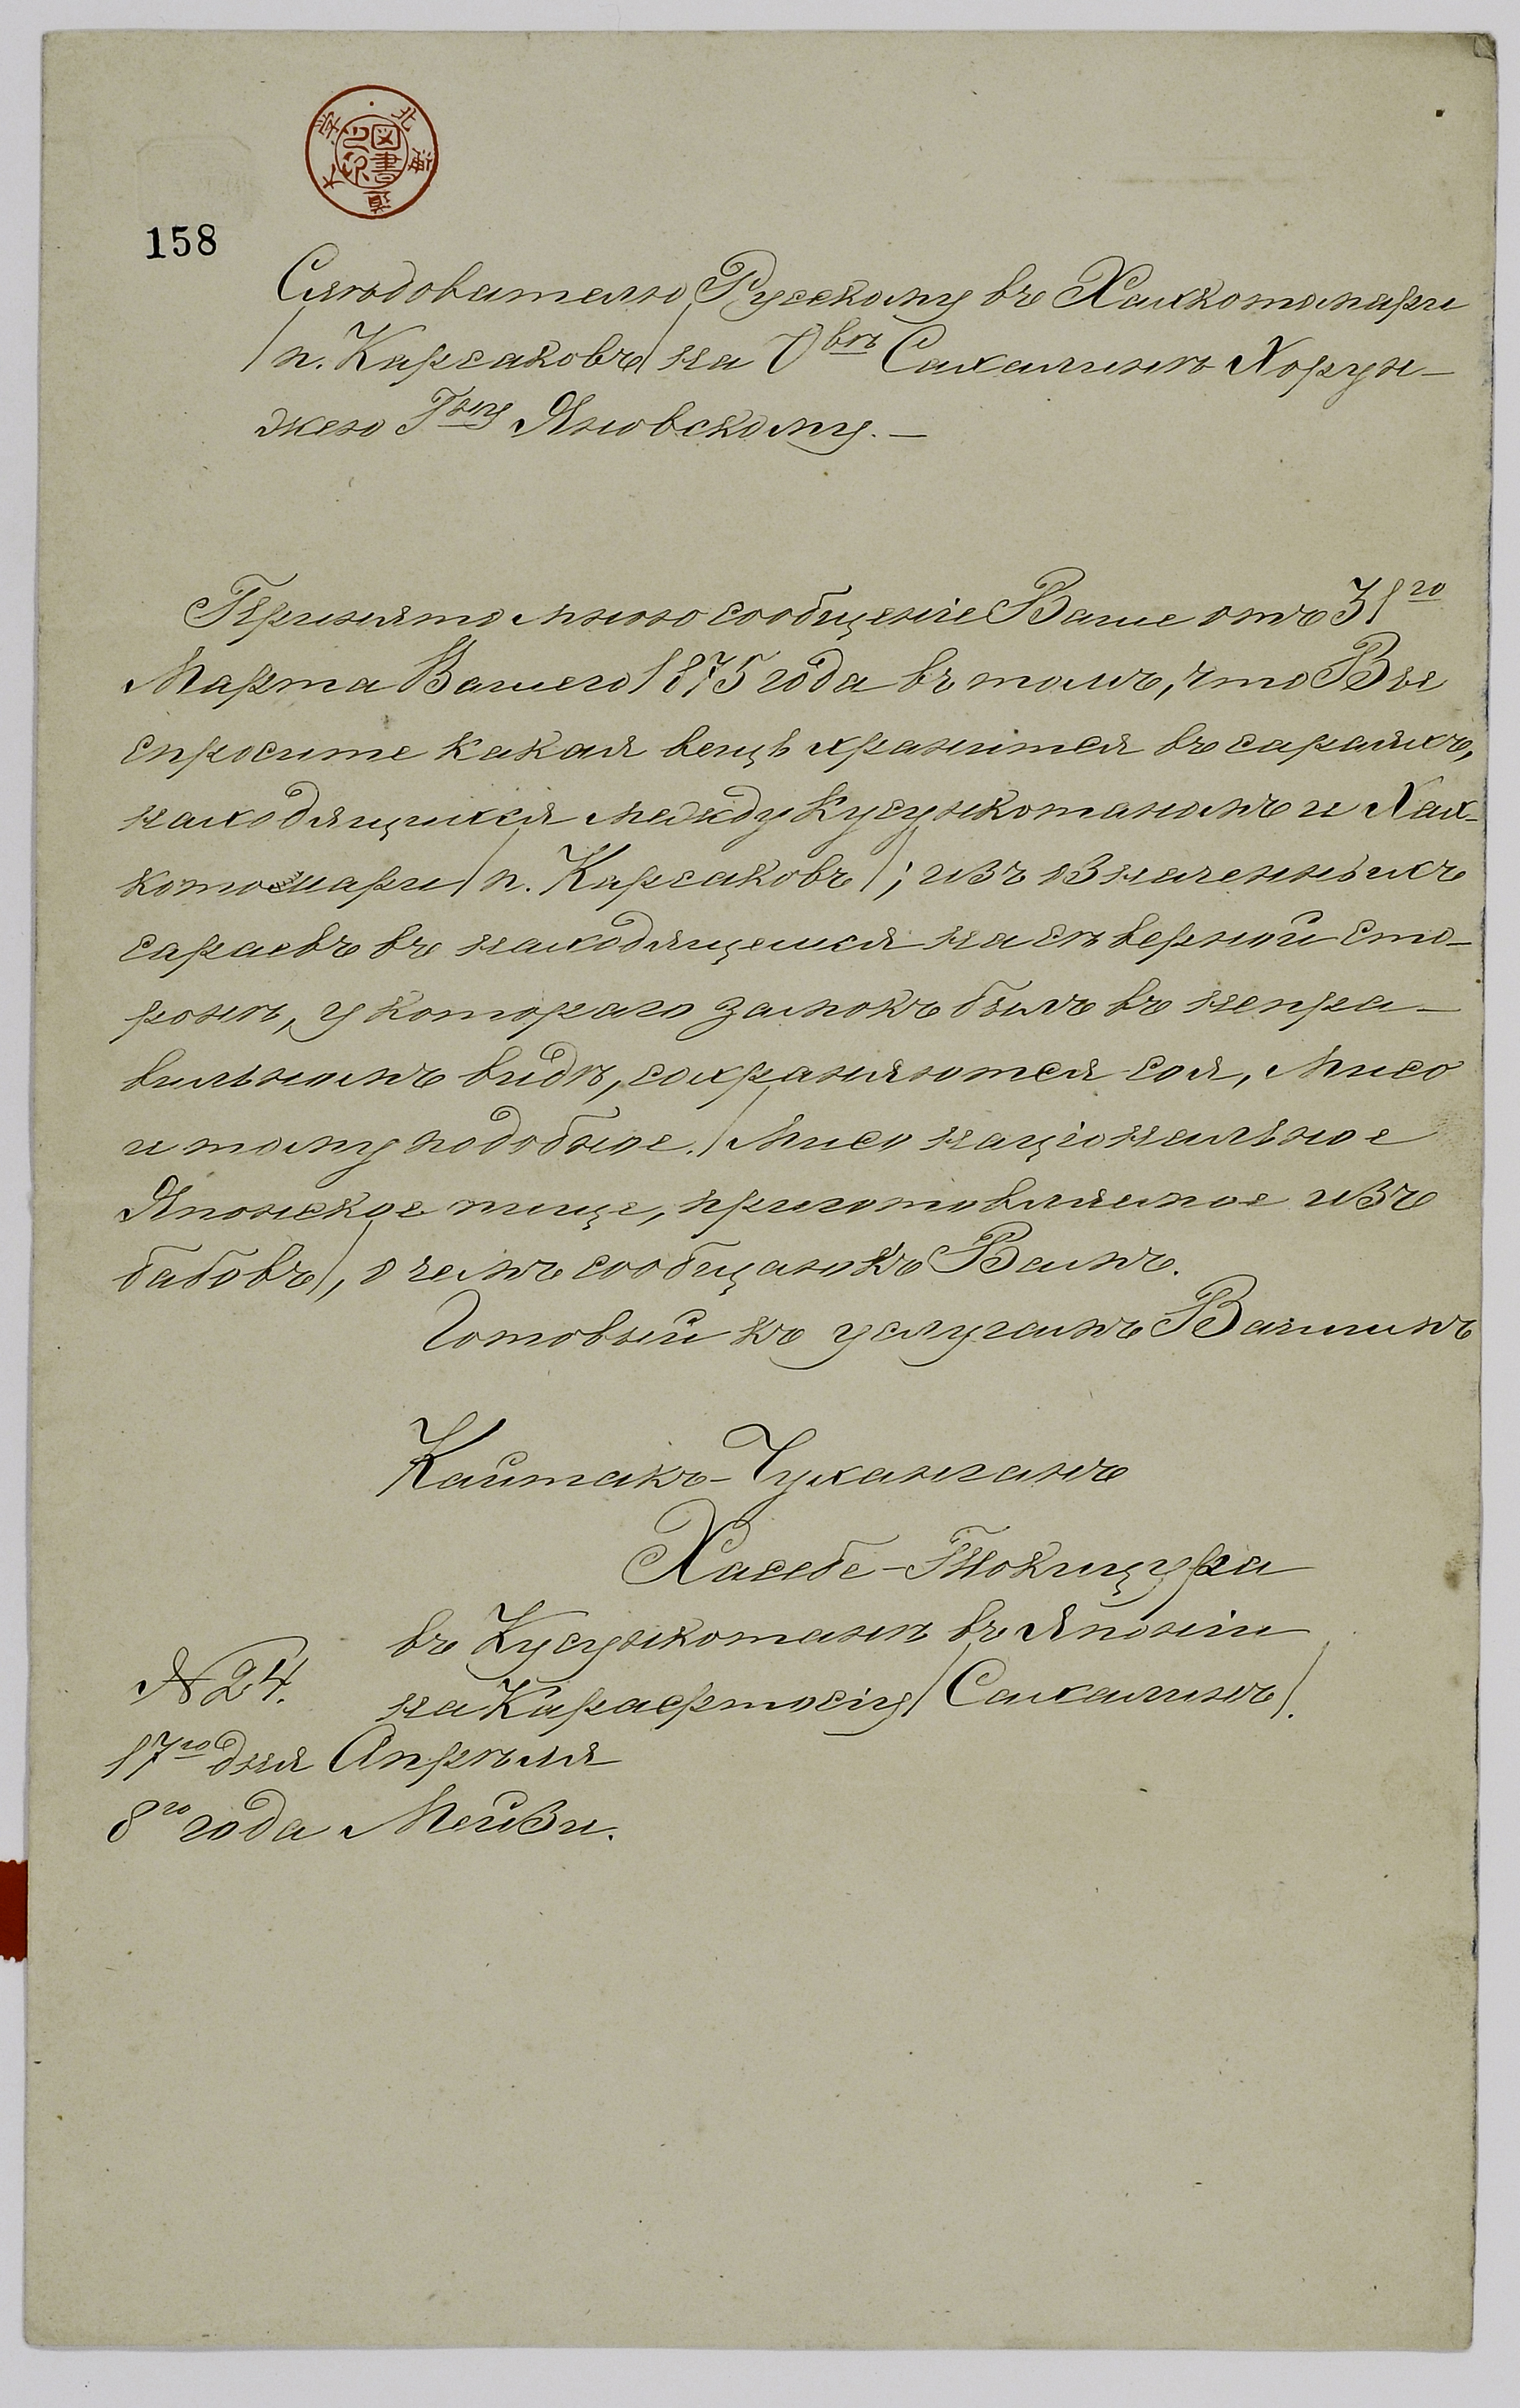 北海道大学
図書之印
158
Слѣдователю Русскому въ Хахкотомари
/п. Карсаковъ/ на О<sup>вѣ</sup> Сахалинѣ Хорун-
жею Г<sup>ну</sup> Яновскому. —
Принято мною сообщеніе Ваше отъ 31<sup>го</sup>
Марта Вашего 1875 года въ томъ, что Вы
спросите какая вещь хранится въ сараяхъ,
находящихся между Кусункотаномъ и Хах-
котомари /п. Карсаковъ/; изъ значенныхъ
сараевъ въ находящемся на сѣверной сто-
ронѣ, у котораго замокъ былъ въ непра-
вильномъ видѣ, сохраняются соя, Мисо
и тому подобное. /Мисо національное
Японское пище, приготовляемое изъ
бабовъ/, о чемъ сообщаю къ Вамъ.
Готовый къ услугамъ Вашимъ
Кайтакъ-Чуханганъ
Хасебе-Токицура
въ Кусункотанѣ въ Японіи
на Карафтосіу /Сахалинъ/.
№ 24.
17<sup>го</sup> дня Апрѣля
8<sup>го</sup> года Мейзи.